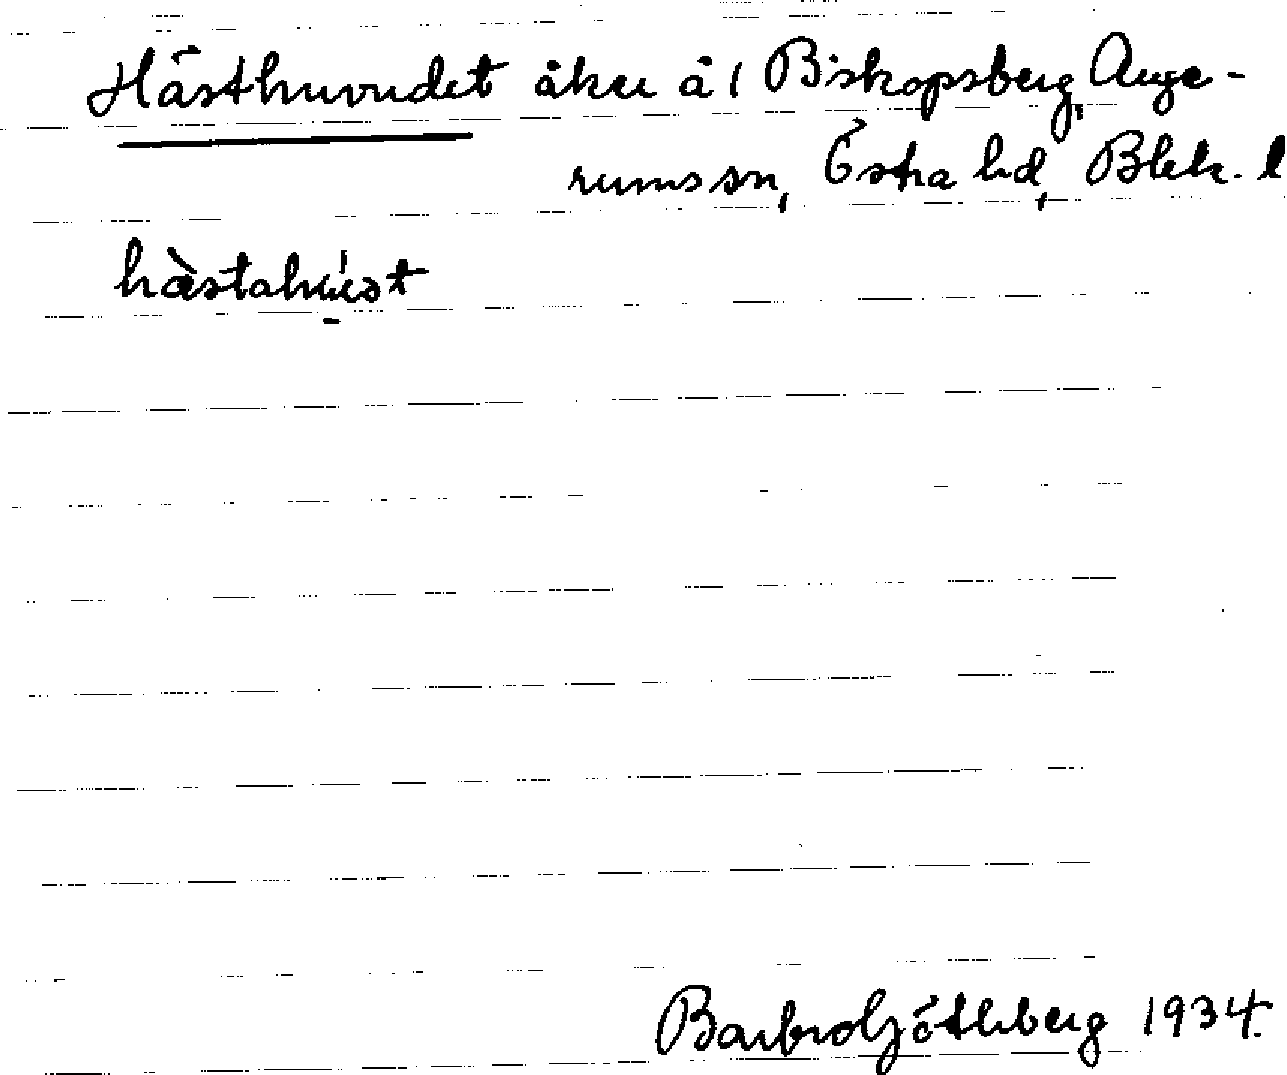 Hästhuvudet åker å 1 Biskopsberg, Auge-
rums sn, Östra hd, Blek. l
Barbro Götheberg 1934.